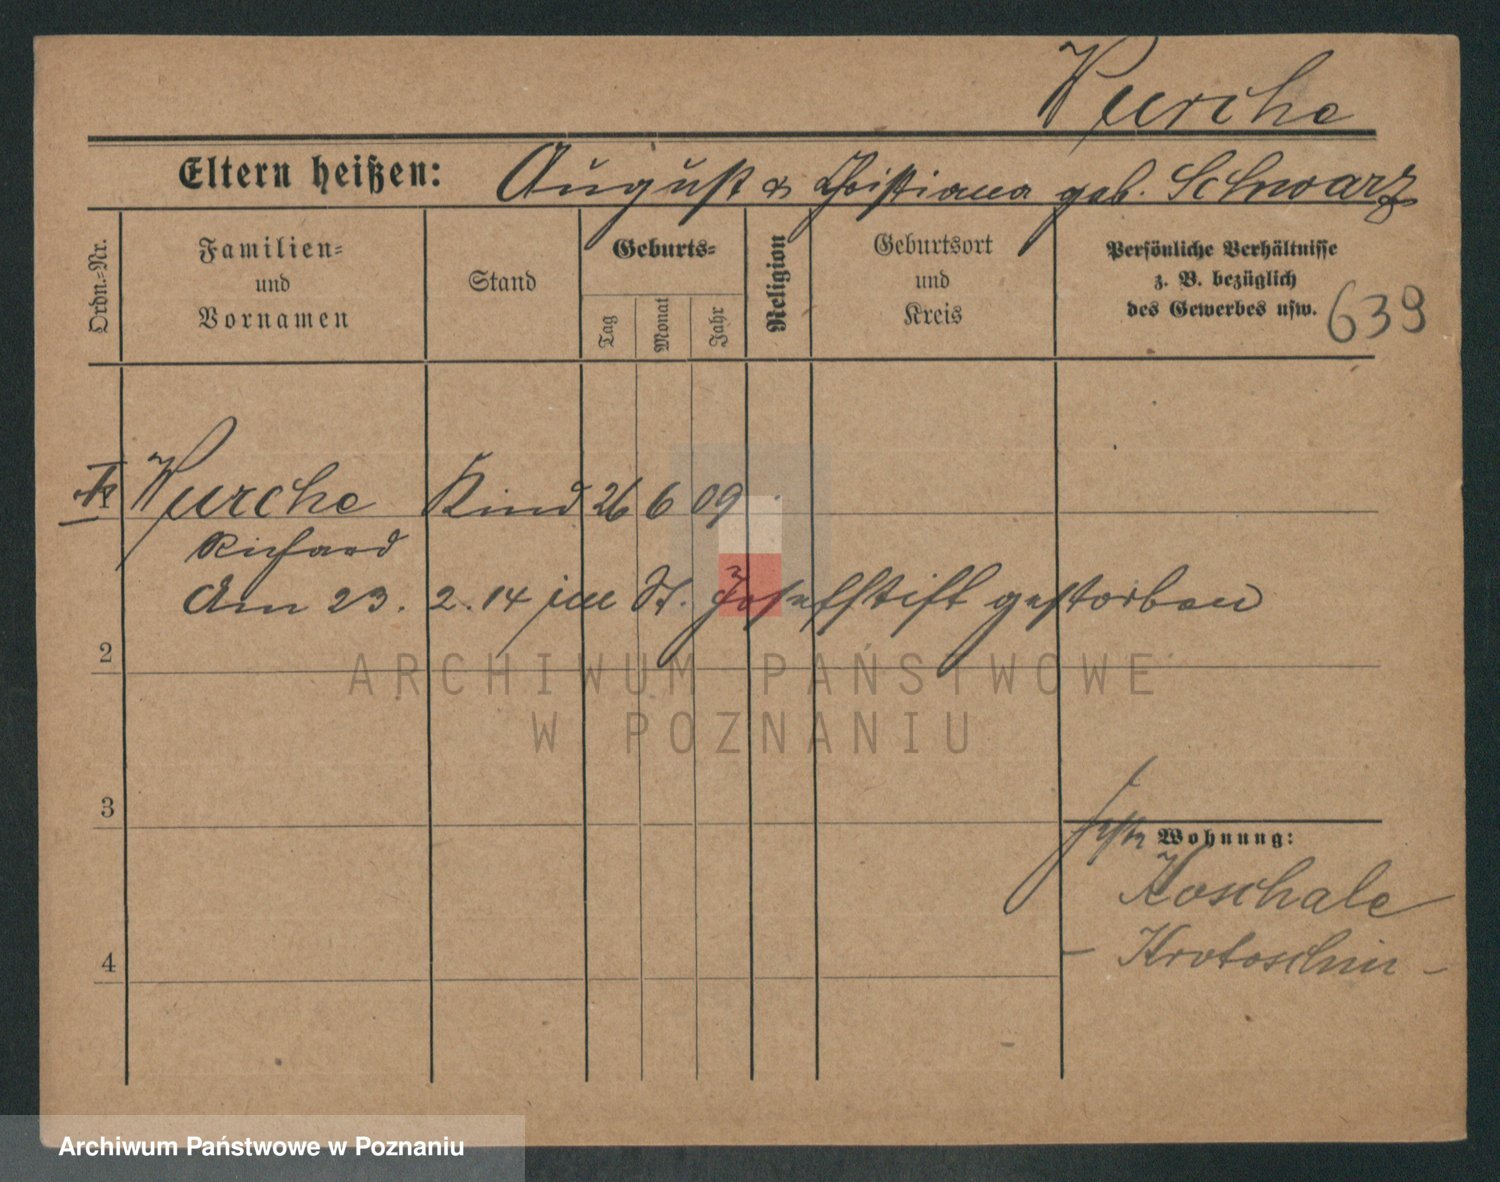 Wurche
Eltern heißen: August & Christiana geb. Schwarz
Ordn.=Nr.
Familien=
und
Vornamen
Stand
Geburts=
Tag
Monat
Jahr
Religion
Geburtsort
und
Kreis
Persönliche Verhältnisse
z. B. bezüglich
des Gewerbes usw.
639
Wurche Kind 26 6 09
Richard
Am 23. 2. 14 im St. Josefstift gestorben
2
3
Wohnung:
Koschale
- Krotoschin -
4
ARCHIWUM PAŃSTWOWE
W POZNANIU
Archiwum Państwowe w Poznaniu